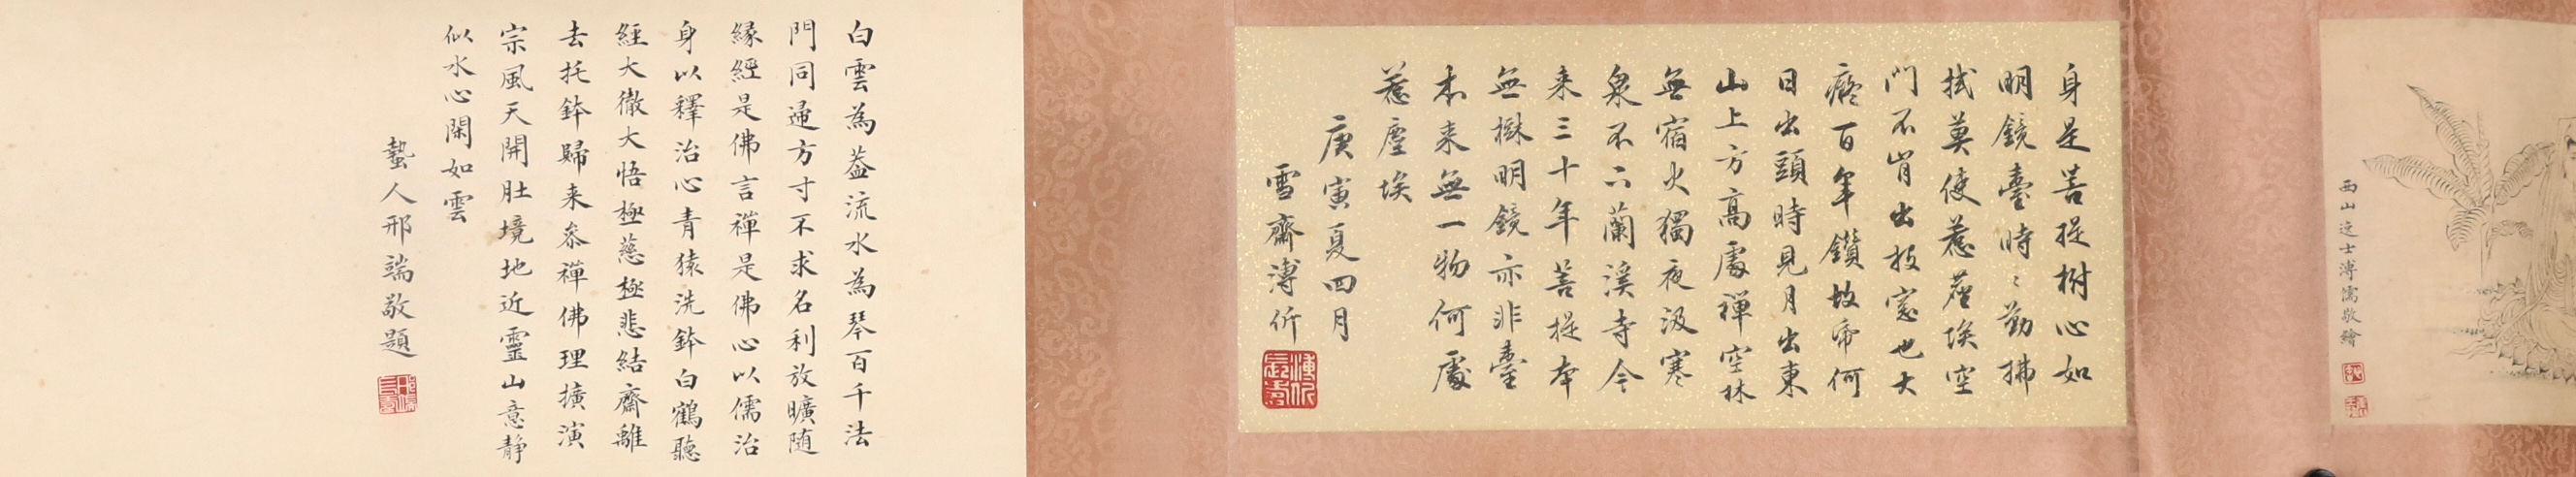 西山逸士溥儒敬繪
身是菩提樹心如
明鏡臺時〻勤拂
拭莫使惹塵埃空
門不肯出投窓也大
癡百年鑽故帋何
日出頭時見月出東
山上方高處禪空林
無宿火獨夜汲寒
泉不下蘭溪寺今
来三十年菩提本
無樹明鏡亦非臺
本来無一物何處
惹塵埃
庚寅夏四月
雪齋溥伒
白雲為蓋流水為琴百千法
門同通方寸不求名利放曠随
緣經是佛言禪是佛心以儒治
身以釋治心青猿洗鉢白鶴聽
經大徹大悟極慈極悲結齋離
去托鉢歸来參禪佛理擴演
宗風天開肚境地近靈山意靜
似水心閑如雲
蟄人邢端敬題